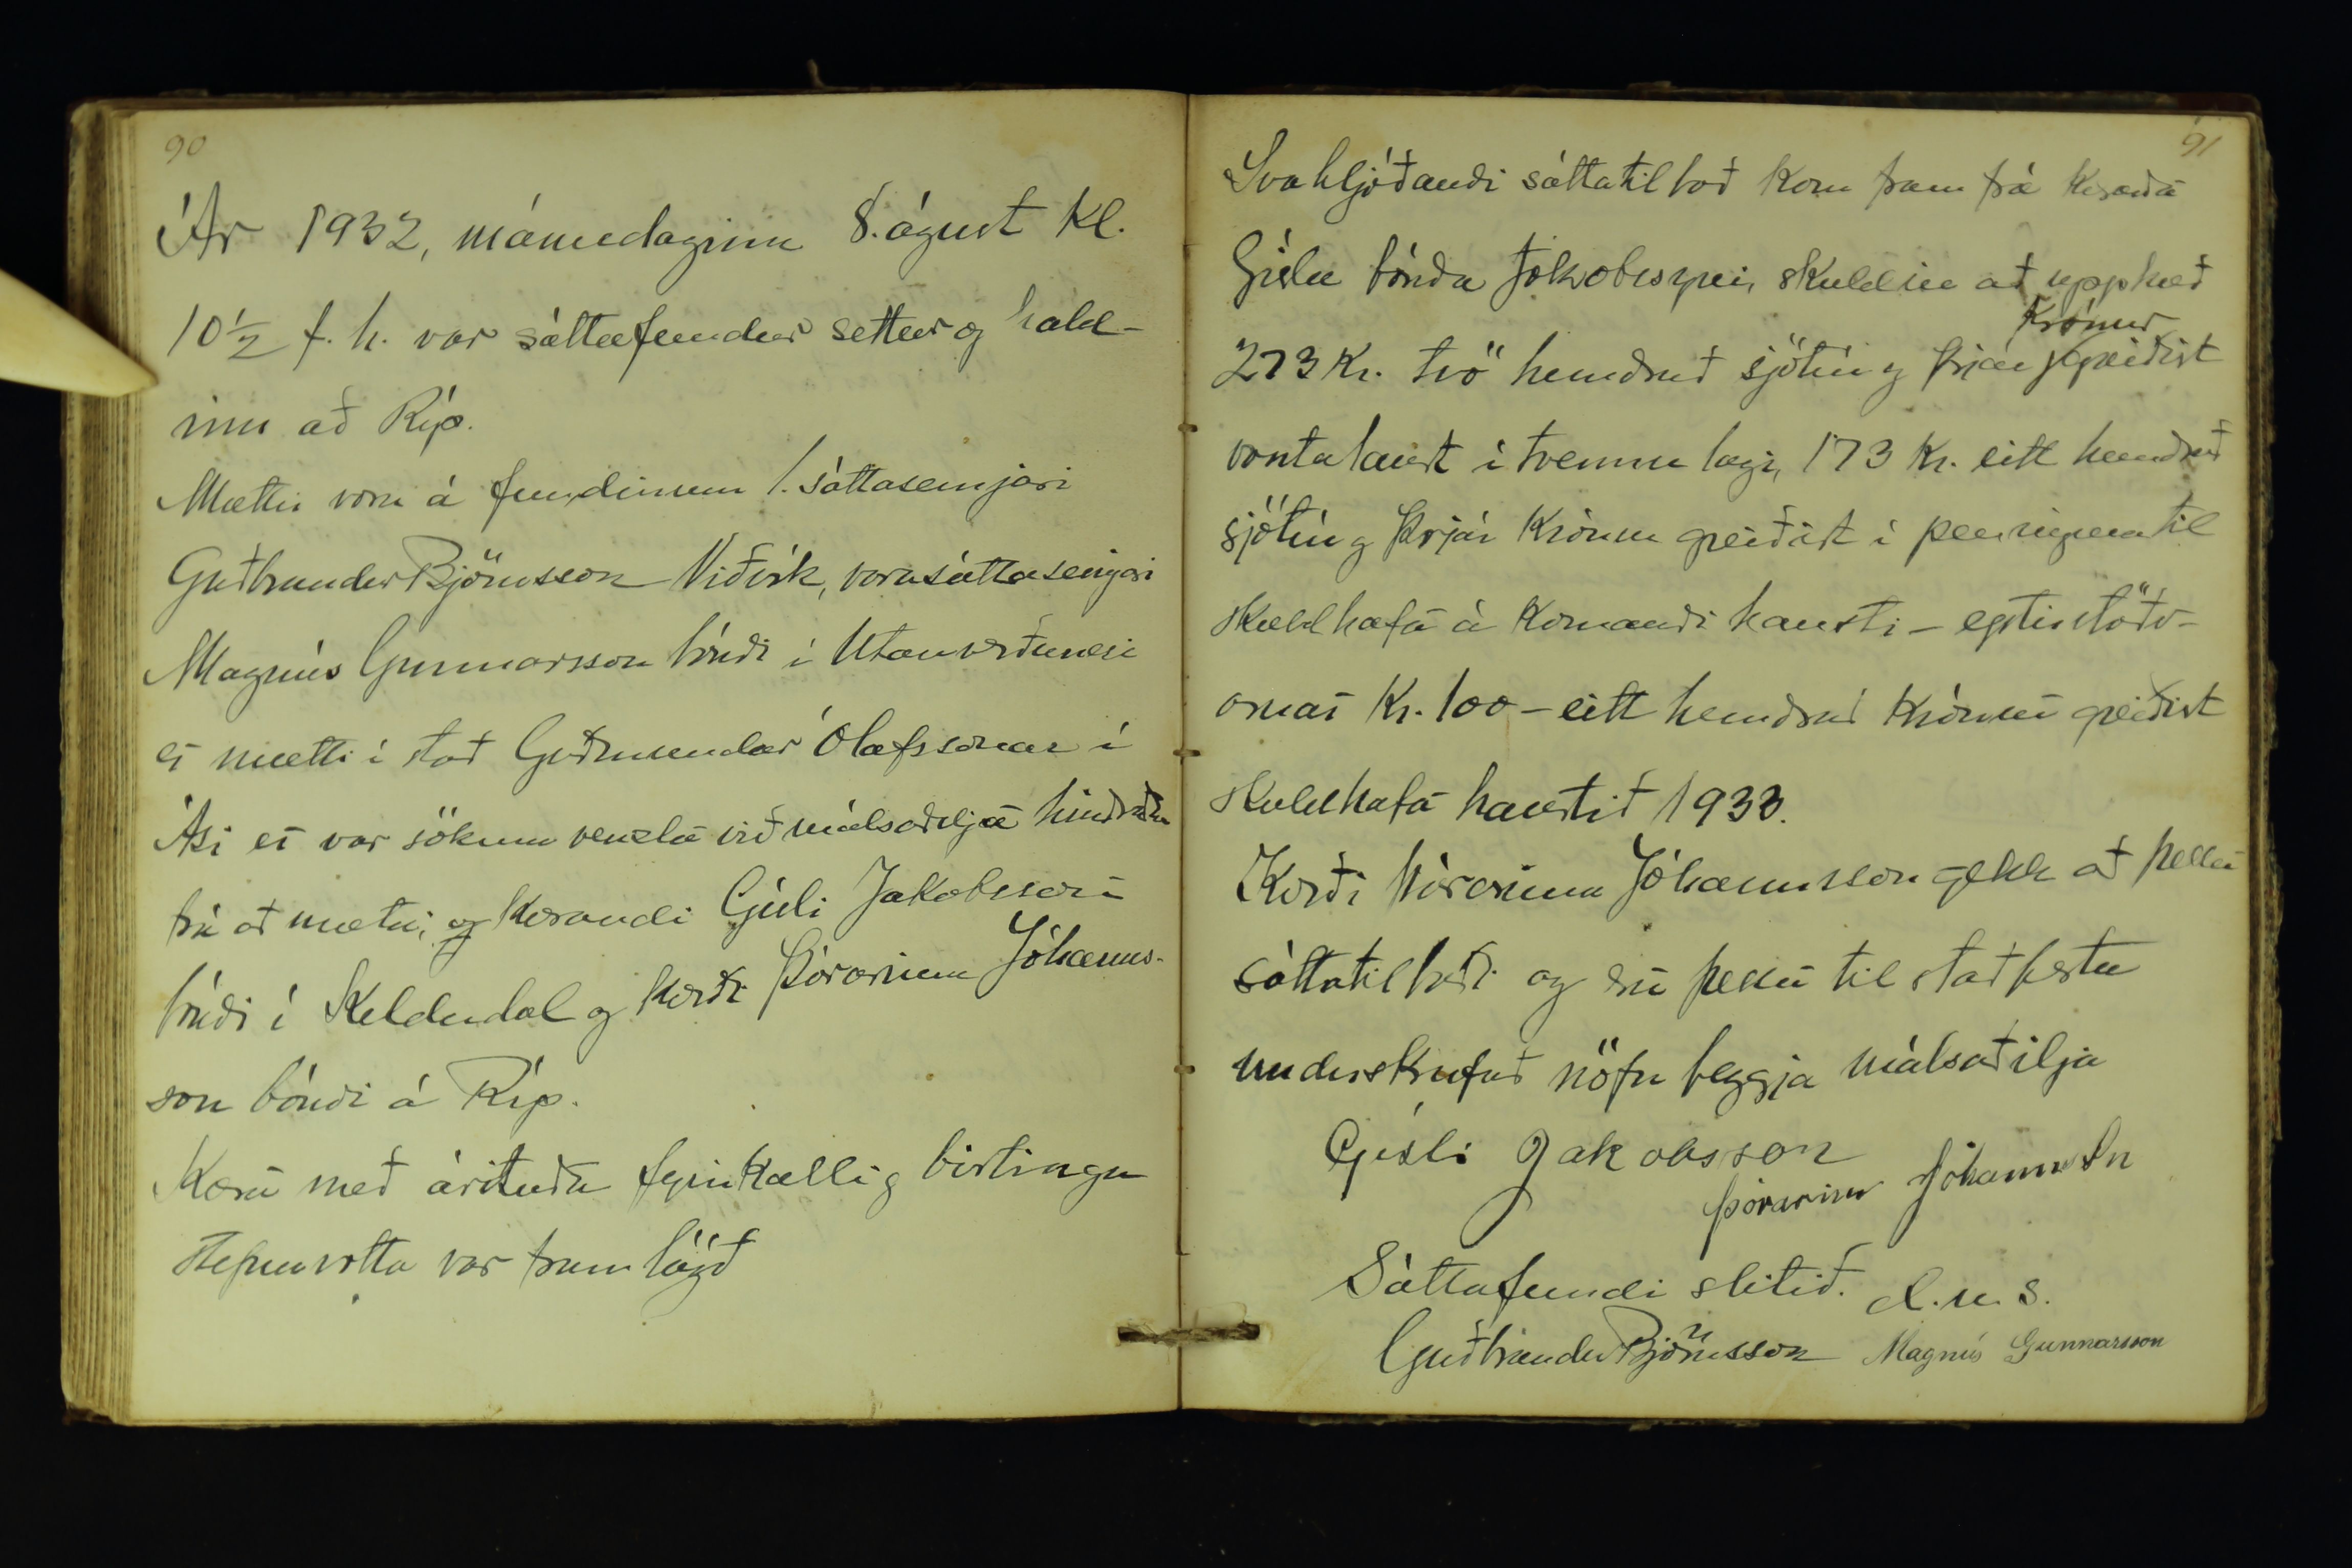 90
Ár 1932, mánudaginn 8. ágúst kl.
10½ f.h. var sáttafundur settur og hald-
inn að Ríp.
Mættir voru á fundinum 1. sáttasemjari
Guðbrandur Björnsson Viðvík, varasáttasemjari
Magnús Gunnarsson bóndi í Utanverðunesi
er mætti í stað Guðmundar Ólafssonar í
Ási er var sökum venzla við málsaðilja hindraður
frá að mæta; og kærandi Gísli Jakobsson
bóndi í Keldudal og kærði Þórarinn Jóhanns-
son bóndi á Ríp.
Kæra með árituðu fyrirkalli og birtingu
stefnuvotta var fram lögð
91
Svohljóðandi sáttatilboð kom fram frá kæranda
Gísla bónda Jakobssyni, skuldin að upphæð
Krónur
273 Kr. tvö hundruð sjötíu og þrjár greiðist
vaxtalaust í tvennu lagi, 173 Kr. eitt hundrað
sjötíu og þrjár krónur greiðist í peningum til
skuldhafa á komandi hausti – eftirstöðv-
arnar Kr. 100 – eitt hundrað krónur greiðist
skuldhafa haustið 1933.
Kærði Þórarinn Jóhannsson gekk að þessu
sáttatilboði og eru þessu til staðfestu
underskrifuð nöfn beggja málsaðilja
Gísli Jakobsson
Þórarinn Jóhannsson
Sáttafundi slitið. d.u.s.
Guðbrandur Björnsson Magnús Gunnarsson